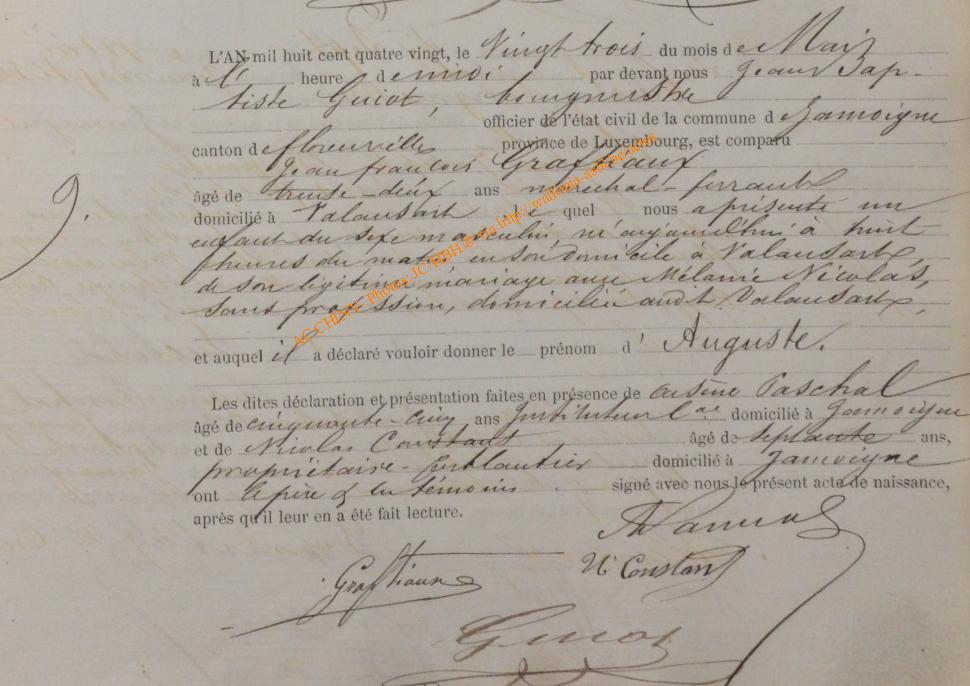 L'AN mil huit cent quatre vingt, le Vingt trois du mois de Mai
à l' heure de midi par devant nous Jean Bap-
tiste Guiot, bourgmestre
officier de l'état civil de la commune d e Jamoigne
canton de florenville province de Luxembourg, est comparu
Jean françois Graftiaux
âgé de trente-deux ans maréchal-ferrant
9. domicilié à Valansart, le quel nous a présenté un
enfant du sexe masculin, né aujourd'hui à huit
heures du matin en son domicile à Valansart,
de son légitime mariage avec Mélanie Nicolas,
sans profession, domiciliée audit Valansart,
et auquel il a déclaré vouloir donner le prénom d' Auguste.
Les dites déclaration et présentation faites en présence de arsène Paschal
âgé de cinquante-cinq ans Instituteur domicilié à Jamoigne
et de Nicolas Constant âgé de septante ans,
propriétaire-ferblantier domicilié à Jamoigne
ont le père & les témoins signé avec nous le présent acte de naissance,
après qu'il leur en a été fait lecture.
N. Constant
Graftiaux
Guiot
AC CHINY Photos JC/HBH@ via http://wallonia-asbl.be